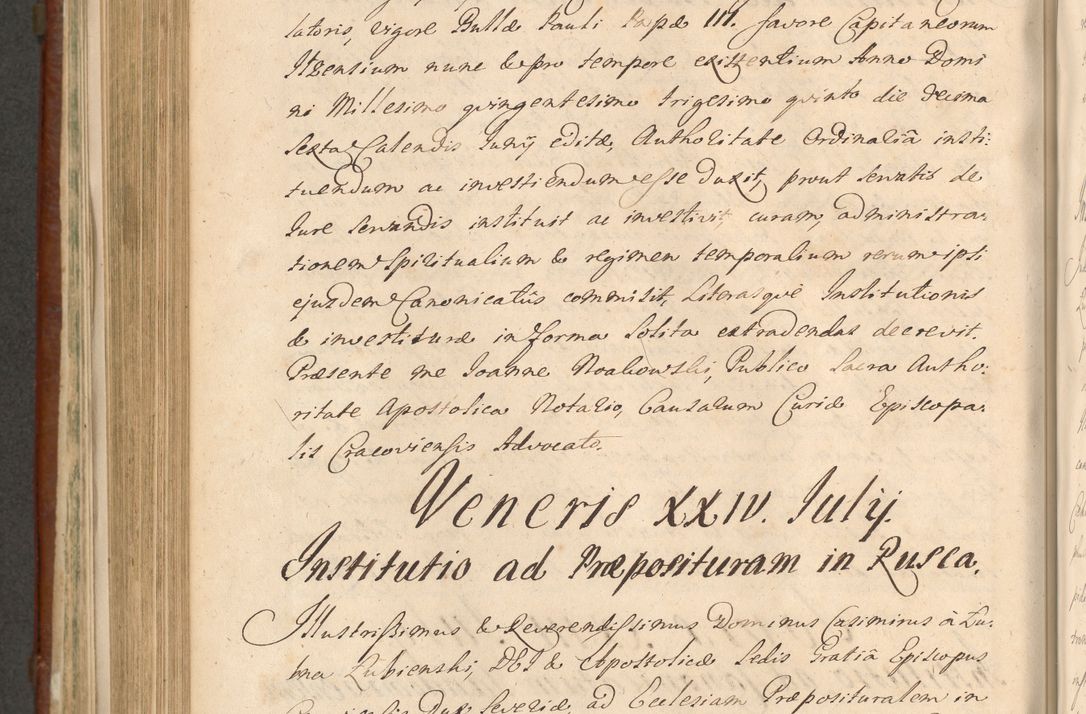 latoris, vigore Bullæ Pauli Papæ III. favore Capitaneorum
Ilzensium nunc & pro tempore existentium Anno Domi
ni Millesimo quingentesimo trigesimo quinto die Decima
Sexta Calendis Junij editæ, Authoritate Ordinariâ insti:
tuendum ac investiendum esse duxit, prout servatis de
Jure servandis instituit ac investivit, curam, administra:
tionem Spiritualium & regimen temporalium rerum ipsi
ejusdem Canonicatûs commisit, Literasque Institutionis
& investituræ in forma solita extradendas decrevit.
Præsente me Joanne Noakowski, Publico Sacra Autho:
ritate Apostolica Notario, Causarum Curiæ Episcopa:
lis Cracoviensis Advocato.
Veneris XXIV. Julij.
Institutio ad Præposituram in Rusca.
Illustrissimus & Reverendissimus Dominus Casimirus à Lu:
bna Lubienski, DEI & Apostolicæ Sedis Gratiâ Episcopus
Dux Severiæ, ad Ecclesiam Præposituralem in